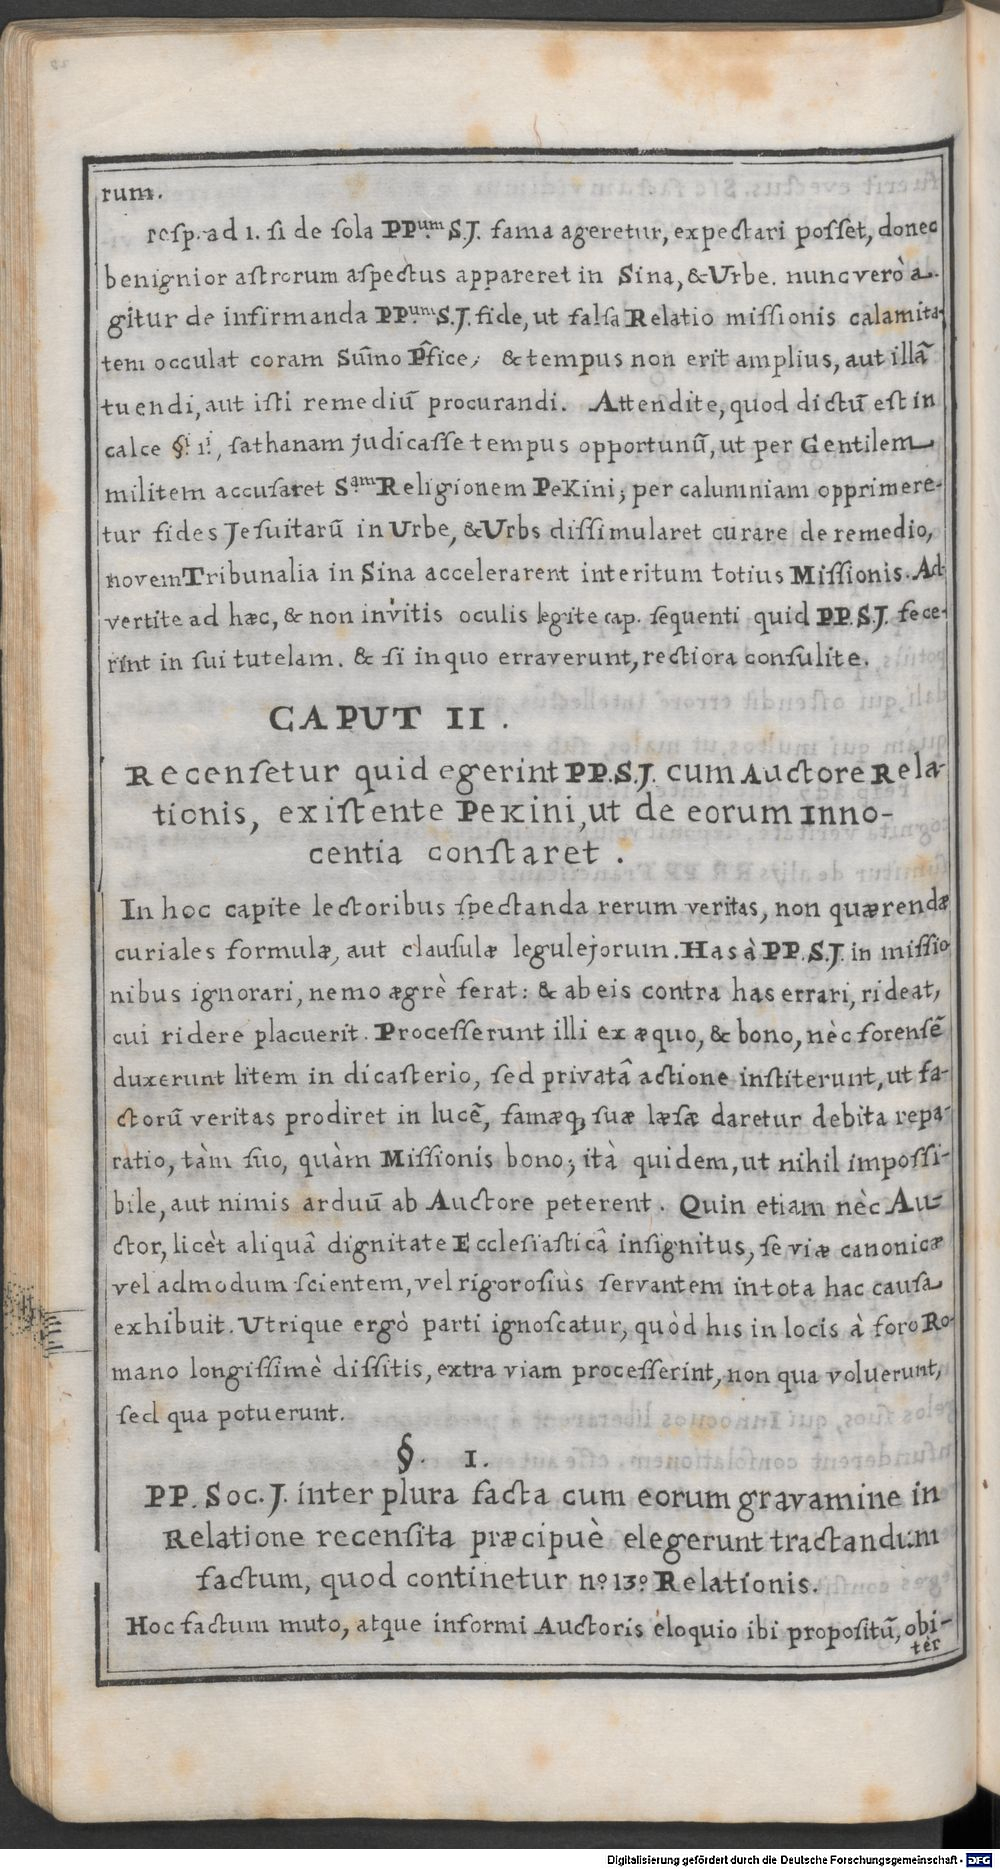 rum.
resp. ad 1. si de sola PP.um S.J. fama ageretur, expectari posset, donec
benignior astrorum aspectus appareret in Sina, & Urbe. nunc verò a-
gitur de infirmanda PP.um S.J. fide, ut falsa Relatio missionis calamita-
tem occulat coram Sum̃o Pf̂ice; & tempus non erit amplius, aut illã
tuendi, aut isti remediũ procurandi. Attendite, quod dictũ est in
calce §i 1i, sathanam judicasse tempus opportunũ, ut per Gentilem
militem accusaret Sam Religionem Pekini; per calumniam opprimere-
tur fides Jesuitarũ in Urbe, & Urbs dissimularet curare de remedio,
novem Tribunalia in Sina accelerarent interitum totius Missionis. Ad-
vertite ad hæc, & non invitis oculis legite cap. sequenti quid PP. S.J. fece-
rint in sui tutelam. & si in quo erraverunt, rectiora consulite.
CAPUT II.
Recensetur quid egerint PP. S.J. cum Auctore Rela-
tionis, existente Pekini, ut de eorum Inno-
centia constaret.
In hoc capite lectoribus spectanda rerum veritas, non quærendæ
curiales formulæ, aut clausulæ legulejorum. Has à PP. S.J. in missio-
nibus ignorari, nemo ægrè ferat: & ab eis contra has errari, rideat,
cui ridere placuerit. Processerunt illi ex æquo, & bono, nèc forensẽ
duxerunt litem in dicasterio, sed privatâ actione institerunt, ut fa-
ctorũ veritas prodiret in lucẽ, famæq; suæ læsæ daretur debita repa-
ratio, tàm suo, quàm Missionis bono; ità quidem, ut nihil impossi-
bile, aut nimis arduũ ab Auctore peterent. Quin etiam nèc Au-
ctor, licèt aliquâ dignitate Ecclesiasticâ insignitus, se viæ canonicæ
vel admodum scientem, vel rigorosiùs servantem in tota hac causa
exhibuit. Utrique ergò parti ignoscatur, quòd his in locis à foro Ro-
mano longissimè dissitis, extra viam processerint, non qua voluerunt,
sed qua potuerunt.
§. I.
PP. Soc. J. inter plura facta cum eorum gravamine in
Relatione recensita præcipuè elegerunt tractandum
factum, quod continetur no. 13o Relationis.
Hoc factum muto, atque informi Auctoris eloquio ibi propositũ, obi-
ter
Digitalisierung gefördert durch die Deutsche Forschungsgemeinschaft - DFG